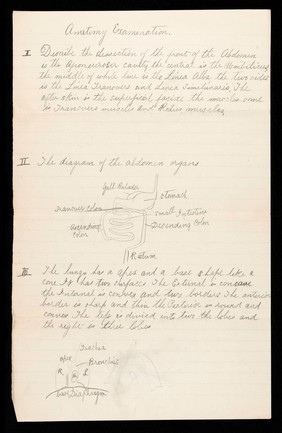 Anatomy Examination
I Discribe the dissection of the front of the Abdomen
is the cavity the central is the Umbilicus
the middle of white line is the Linea Alba the two sides
is the Linea Tranvers and Linea Semilunaris The
after skin is the superficial facies the muscles come
is Tranvers muscles and Retus muscles
II The diagram of the abdomen organs
Gall Bladder
stomach
Tranvers Colon
small Intestine
Ascending
Colon
Descending Colon
Retum
III The lungs has a apex and a base shape like a
cone It has two surfaces The External is concave
the Internal is convex and two borders The anterior
border is sharp and thin the Posterior is round and
convex The left is divied into two the lobes and
the right is three lobes
Trachea
apex
Bronchus
R L
base Diaphragm